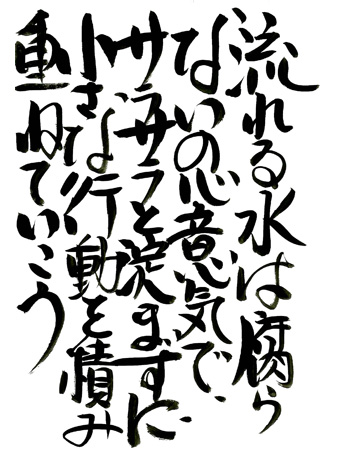 流れる水は腐ら
ないの心意気で、
サラサラと淀まずに
小さな行動を積み
重ねていこう